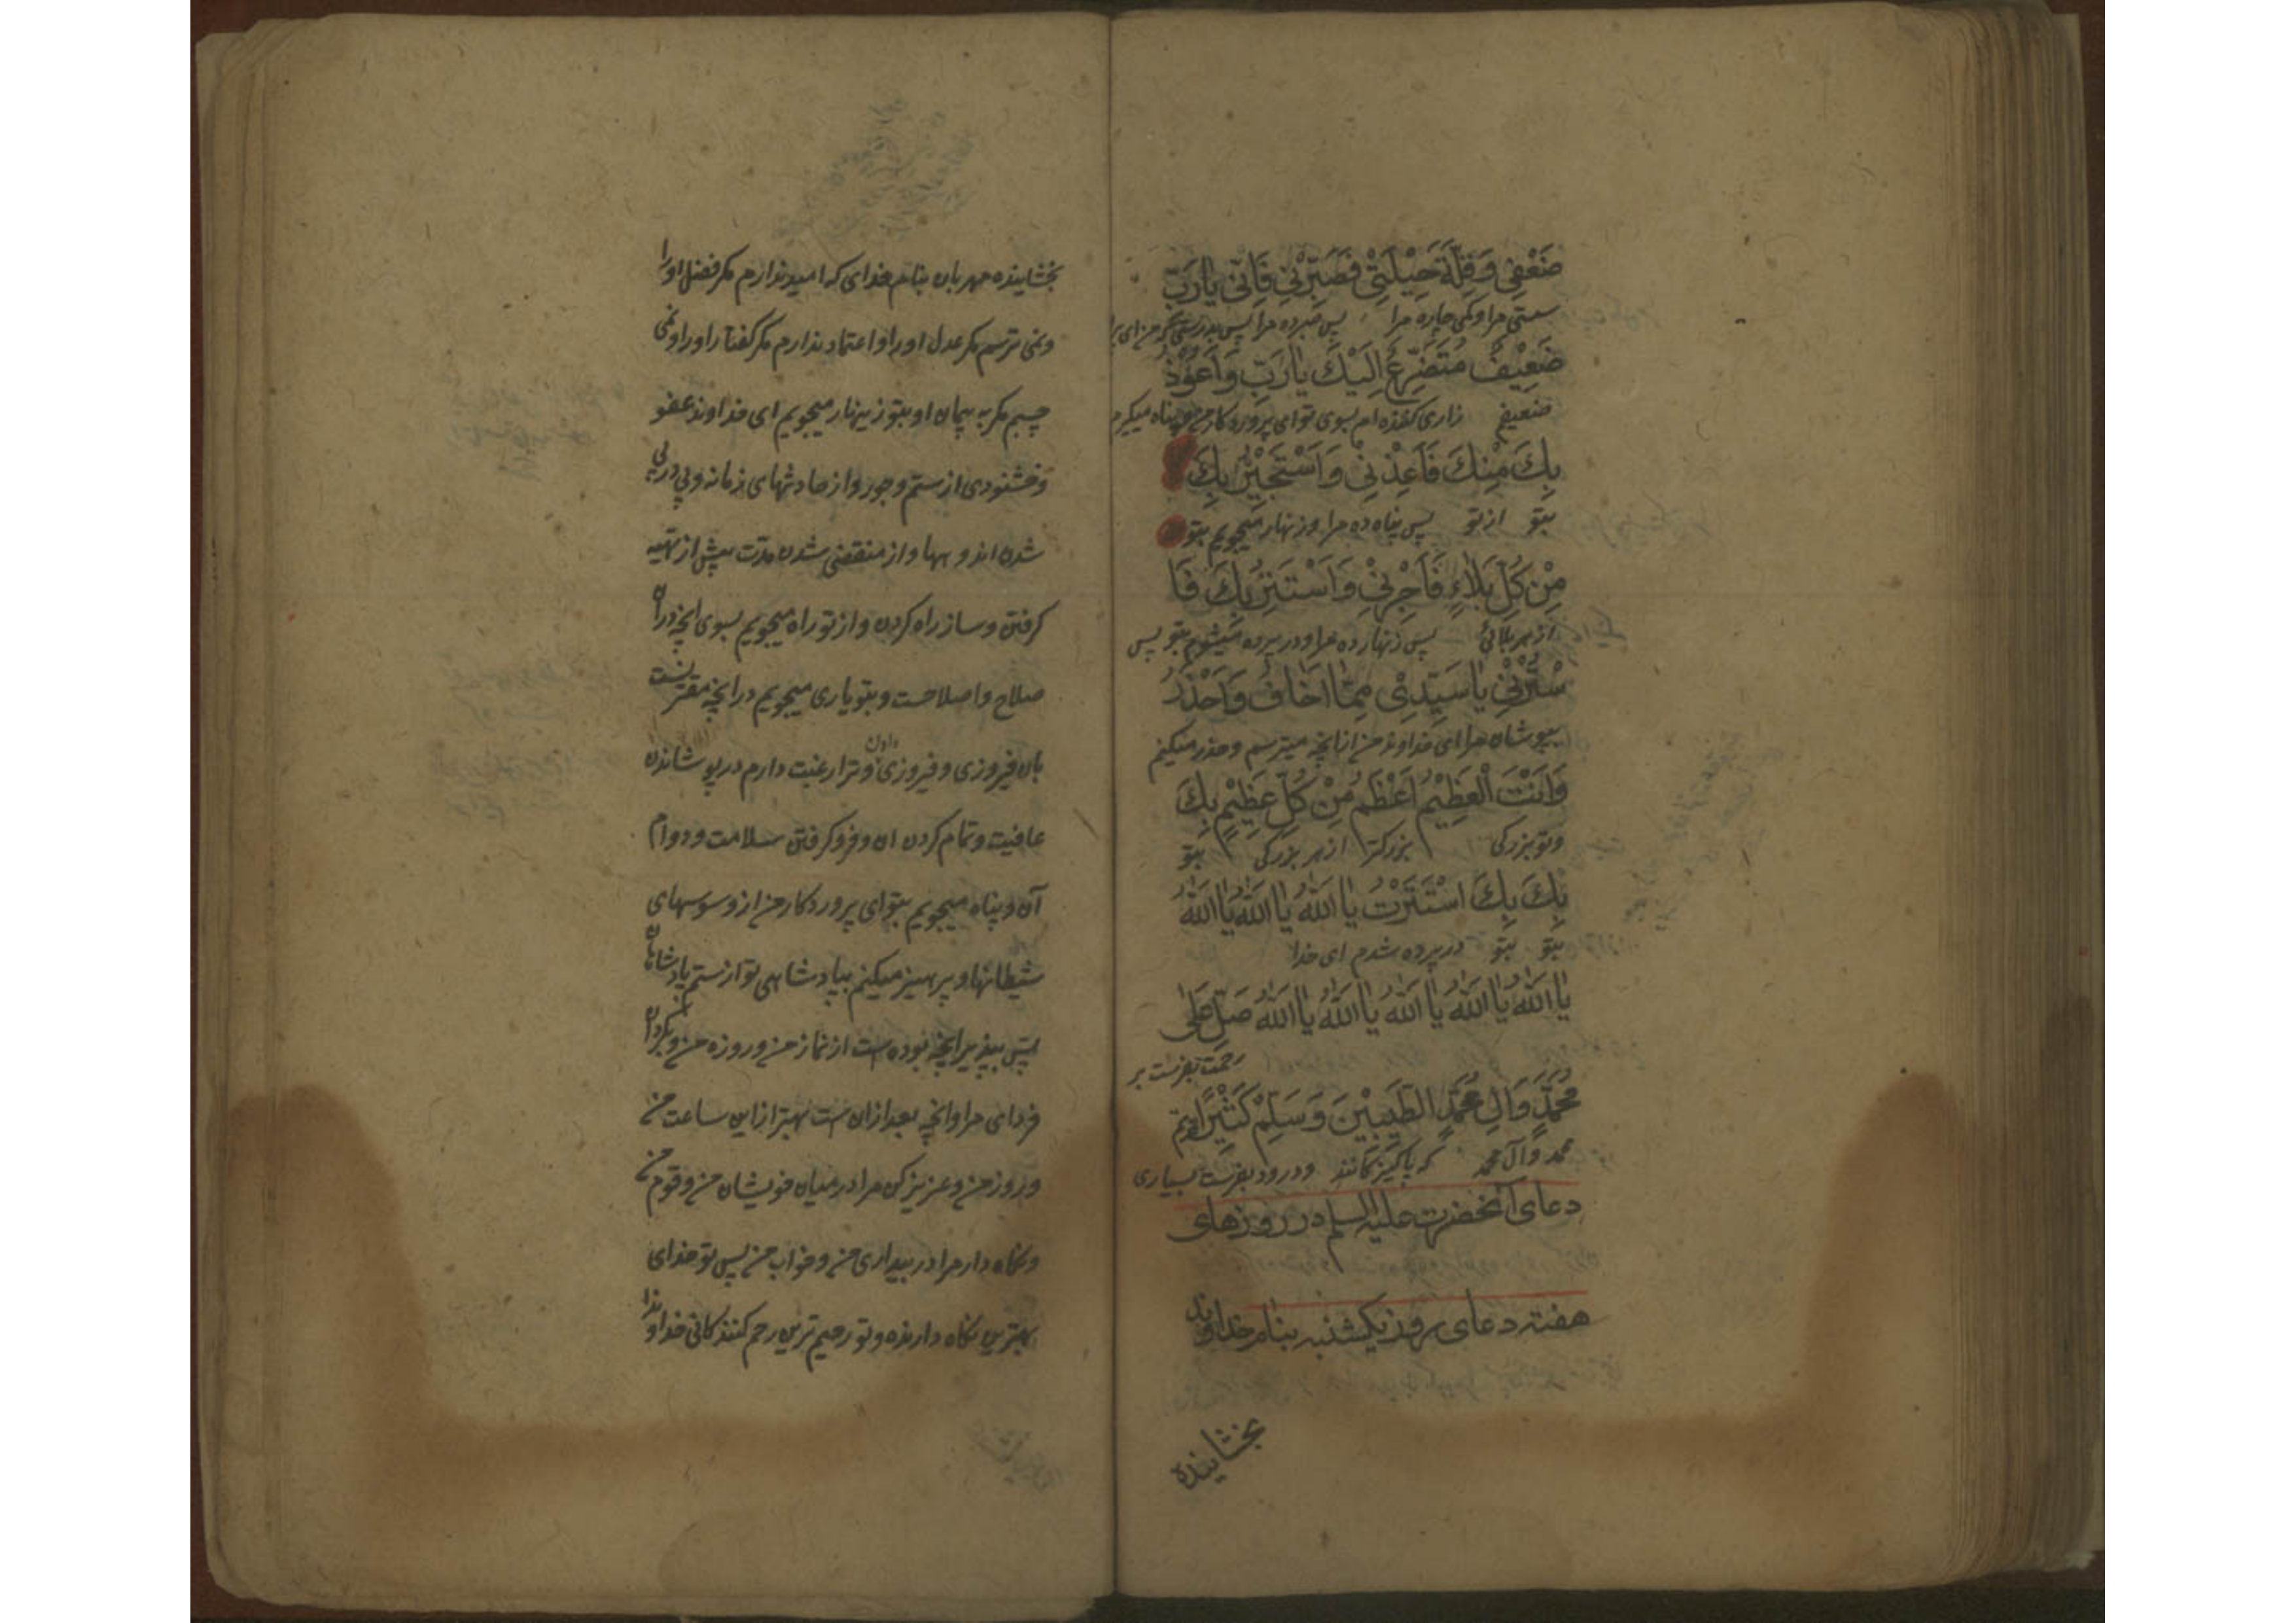 ضَعْفِی وَقِلَّةَ حِیْلَتِیْ فَصَبِّرْنِیْ فَاِنِّی یَارَبِّ
سستی مرا و کمی چاره مرا پس صبر ده مرا پس بدرستیکه من ای
ضَعِیْفٌ مُتَضَرِّعٌ اِلَیْكَ یَا رَبِّ وَاَعُوْذُ
ضعیفم زاری کننده ام بسوی تو ای پروردکار من و پناه میکیرم
بِكَ مِنْكَ فَاَعِذْنِیْ وَاَسْتَجِیْرُ بِكَ
بتو از تو پس پناه ده مرا و زنهار میجویم بتو
مِنْ كُلِّ بَلَاءٍ فَاَجِرْنِیْ وَاَسْتَتِرُ بِكَ فَا
از هر بلائی پس زنهار ده مرا و در پرده میشوم بتو پس
سْتُرْنِیْ یَا سَیِّدِیْ مِمَّا اَخَافُ وَاَحْذَرُ
بپوشان مرا ای خداوند من از انچه میترسم و حذر میکنم
وَاَنْتَ الْعَظِیْمُ اَعْظَمُ مِنْ كُلِّ عَظِیْمٍ بِكَ
و تو بزرکی بزرکتر از هر بزرکی بتو
بِكَ بِكَ اسْتَتَرْتُ یَا اَللّٰهُ یَا اَللّٰهُ یَا اَللّٰهُ
بتو بتو در پرده شدم ای خدا
یَا اَللّٰهُ یَا اَللّٰهُ یَا اَللّٰهُ یَا اَللّٰهُ یَا اَللّٰهُ صَلِّ عَلٰی
رحمت بفرست بر
مُحَمَّدٍ وَاٰلِ مُحَمَّدٍ الطَّیِّبِیْنَ وَسَلِّمْ كَثِیْرًا
محمد و آل محمد که پاکیزکانند و درود بفرست بسیاری
دعای آنحضرت علیه السلم در روزهای
هفته دعای روز یکشنبه بنام خداوند
بخشاینده
بخشاینده مهربان بنام خدای که امید ندارم مکر فضل او را
و نمی ترسم مکر عدل او را و اعتماد ندارم مکر کفتار او را و نمی
چسبم مکر به پیمان او بتو زینهار میجویم ای خداوند عفو
و خشنودی از ستم و جور و از حادثهای زمانه و پی در پی
شدن اندوهها و از منقضی شدن مدت پیش از تهیه
کرفتن و ساز راه کردن و از تو راه میجویم بسوی انچه در آن
صلاح و اصلاحست و بتو یاری میجویم در انچه مقترنست
بان فیروزی و فیروزی دادن و ترا رغبت دارم در پوشاندن
عافیت و تمام کردن ان و فرو کرفتن سلامت و دوام
آن و پناه میجویم بتو ای پروردکار من از وسوسهای
شیطانها و پرهیز میکنم بپادشاهی تو از ستم پادشاهان
پس بپذیر انچه بوده است از نماز من و روزه من و بکردان
فردای مرا و انچه بعد از ان ست بهتر از این ساعت من
و روز من و عزیز کن مرا در میان خویشان من و قوم من
و نکاه دار مرا در بیداری من و خواب من پس تو خدای
بهترین نکاه دارنده و تو رحیم ترین رحم کنندکانی خداوندا